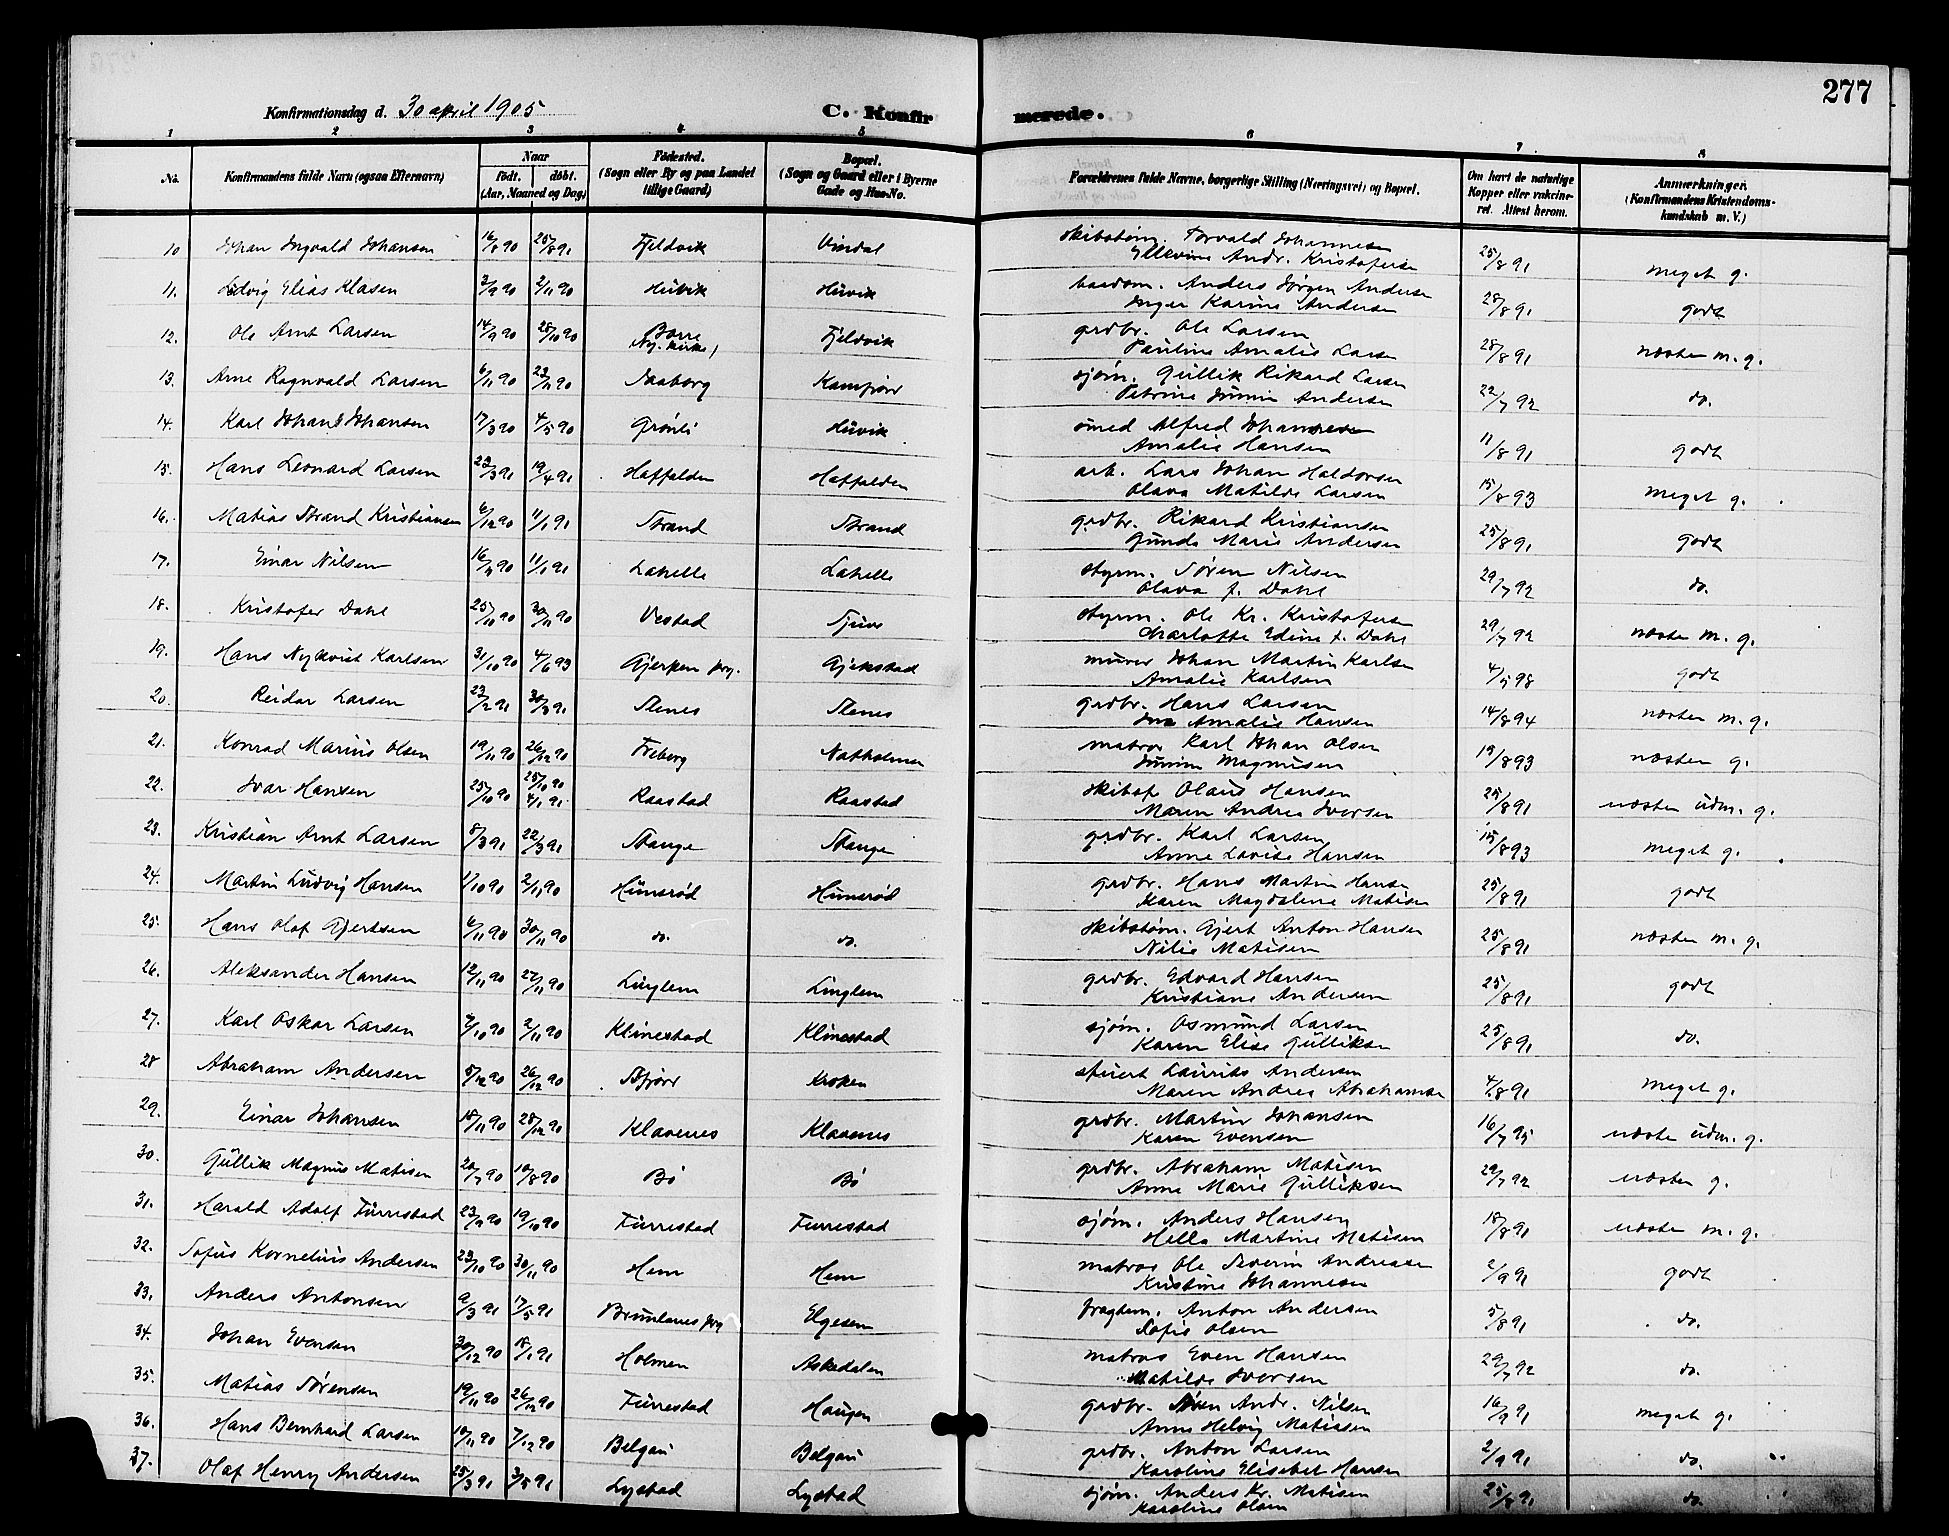 277
Konfirmationsdag d. 30 april 1905 C. Konfirmerede.
1 2 3 4 5 6 7 8
No. Konfirmandens fulde Navn (ogsaa Efternavn) Naar født. døbt. (Aar, Maaned og Dag) Fødested. (Sogn eller By og paa Landet tillige Gaard) Bopæl. (Sogn og Gaard eller i Byerne Gade og Hus-No. Forældrenes fulde Navne, borgerlige Stilling (Næringsvei) og Bopæl. Om havt de naturlige Kopper eller vakcineret. Attest herom. Anmærkninger. (Konfirmandens Kristendomskundskab m. V.)
10 Johan Ingvald Johansen 16/8 90 25/8 91 Fjeldvik Vindal skibstøm. Torvald Johannesen Ellevine Andr. Kristofersen 25/8 91 meget g.
11. Ludvig Elias Klasen 3/9 90 2/11 90 Huvik Huvik Anders Jørgen Andersen Inger Karine Andersen 28/8 91 godt
12. Ole Arnt Larsen 14/9 90 28/10 90 Borre (Ny. kirke) Fjeldvik grdbr. Ole Larsen Pauline Amalie Larsen 28/8 91 næsten m. g.
13. Arne Ragnvald Larsen 6/11 90 23/11 90 Raaborg Kamfjord sjøm. Gullik Rikard Larsen Petrine Andersen 22/7 92 do.
14. Karl Johan Johansen 17/3 90 4/5 90 Grønli Huvik smed Alfred Johannesen Amalie Hansen 11/8 91 godt
15. Hans Leonard Larsen 23/3 91 19/4 91 Haffalden Haffalden arb. Lars Johan Haldorsen Olava Matilde Larsen 15/8 93 meget g.
16. Matias Strand Kristiansen 6/12 90 11/1 91 Strand Strand grdbr. Rikard Kristiansen Gunda Marie Andersen 25/8 91 godt
17. Einar Nilsen 16/11 90 11/1 91 Lahelle Lahelle styrm. Søren Nilsen Olava f. Dahl 29/7 92 do.
18. Kristofer Dahl 25/10 90 30/11 90 Vestad styrm. Ole Kr. Kristofersen Charlotte Edine f. Dahl 29/7 92 næsten m. g.
19. Hans Nykvist Karlsen 31/10 90 4/6 93 Gjerpen prg. Gjekstad murer Johan Martin Karlsen Amalie Karlsen 4/5 98 godt
20. Reidar Larsen 23/2 91 30/3 91 Stenes Stenes grdbr. Hans Larsen Amalie Hansen 14/8 94 næsten m. g.
21. Konrad Marius Olsen 19/11 90 26/12 90 Freberg Natholmen matros Karl Johan Olsen Magnusen 19/8 93 næsten g.
22. Ivar Hansen 25/10 90 25/10 90 4/1 91 Raastad Raastad skibsf Olaus Hansen Maren Andrea Iversen 25/8 91 næsten udm. g.
23. Kristian Arnt Larsen 8/3 91 22/3 91 Stange Stange grdbr. Karl Larsen Anne Lovise Hansen 15/8 93 meget g.
24. Martin Ludvig Hansen 1/10 90 2/11 90 Hunsrød Hunsrød grdbr. Hans Martin Hansen Karen Magdalene Matisen 25/8 91 godt
25. Hans Olaf Gjertsen 6/11 90 30/11 90 do. do. skibstøm. Gjert Anton Hansen Nilia Matisen 25/8 91 næsten m. g.
26. Aleksander Hansen 12/11 90 27/11 90 Linglem Linglem grdbr. Edvard Hansen Kristiane Andersen 25/8 91 godt
27. Karl Oskar Larsen 7/10 90 2/11 90 Klinestad Klinestad sjøm. Osmund Larsen Karen Elise Gulliksen 25/8 91 do.
28 Abraham Andersen 8/12 90 26/12 90 Kroken Laurits Andersen Maren Andrea Abrahamsen 4/8 91 meget g.
29. Einar Johansen 15/11 90 28/12 90 Klavenes Klavenes grdbr. Martin Johansen Karen Evensen 16/7 95 næsten udm. g.
30. Gullik Magnus Matisen 20/7 90 10/8 90 Bø Bø grdbr. Abraham Matisen Anne Marie Gulliksen 29/7 92 næsten g.
31. Harald Adolf Furrestad 23/9 90 19/10 90 Furrestad Furrestad sjøm. Anders Hansen Hella Martine Matisen 18/8 91 næsten m. g.
32. Sofus Kornelius Andersen 23/10 90 30/11 90 Hem Hem matros Ole Severin Andreasen Kristine Johannesen 2/9 91 godt
33. Anders Antonsen 9/3 91 17/5 91 Brunlanes prg Elgesem fragtem. Anton Andersen Sofie Olsen 5/8 91 do.
34. Johan Evensen 30/12 90 18/1 91 Holmen Askedalen matros Even Hansen Matilde Iversen 29/7 92 do.
35. Matias Sørensen 19/11 90 26/12 90 Furrestad Haugen grdbr. Søren Andr. Nilsen Anne Helvig Matiasen 16/9 91 meget g.
36. Hans Bernhard Larsen 10/11 90 7/12 90 Belgau Belgau grdbr. Anton Larsen Karoline Elisebet Hansen 2/9 91 do.
37. Olaf Henry Andersen 25/3 91 3/5 91 Lystad Lystad sjøm. Anders Kr. Matisen Karoline Olsen 25/8 91 do.